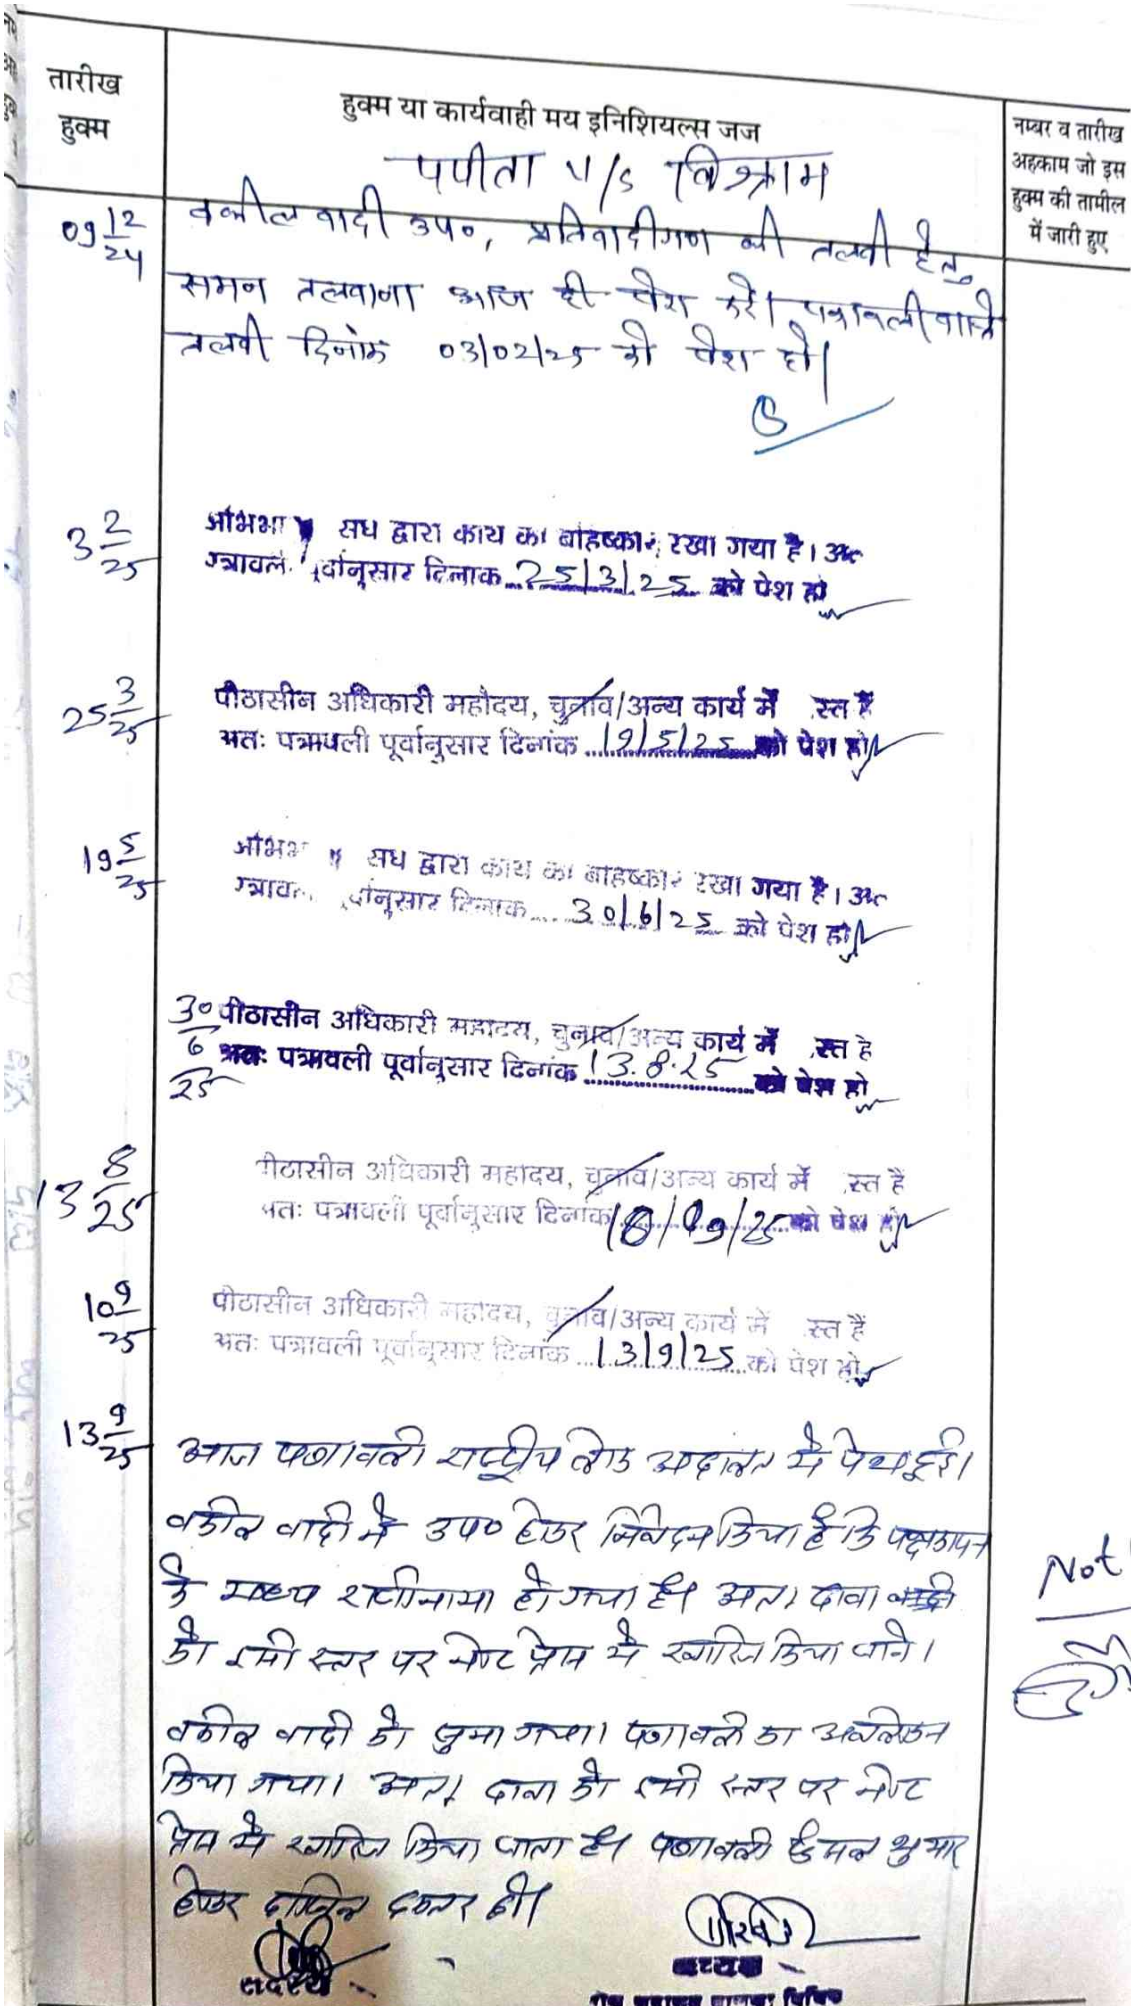 तारीख
हुक्म
हुक्म या कार्यवाही मय इनिशियल्स जज
नम्बर व तारीख
अहकाम जो इस
हुक्म की तामील
में जारी हुए
पपीता v/s विश्राम
09 12/24
वकील वादी उप०, प्रतिवादीगण की तलवी हेतु
समन तलवाना आज ही पेश करे। पत्रावली वास्ते
तलवी दिनांक 03/02/25 को पेश हो।
3 2/25
संघ द्वारा कार्य का बहिष्कार रखा गया है।
र्वानुसार दिनांक 25/3/25 को पेश हो
25 3/25
पीठासीन अधिकारी महोदय, चुनाव/अन्य कार्य में स्त हैं
अतः पत्रावली पूर्वानुसार दिनांक 19/5/25 को पेश हो
19 5/25
संघ द्वारा कार्य का बहिष्कार रखा गया है।
र्वानुसार दिनांक 30/6/25 को पेश हो
30/6/25
पीठासीन अधिकारी महोदय, चुनाव/अन्य कार्य में स्त है
अतः पत्रावली पूर्वानुसार दिनांक 13.8.25 को पेश हो
13 8/25
पीठासीन अधिकारी महोदय, चुनाव/अन्य कार्य में स्त हैं
अतः पत्रावली पूर्वानुसार दिनांक 10/09/25 को पेश हो
10 9/25
पीठासीन अधिकारी महोदय, चुनाव/अन्य कार्य में स्त हैं
अतः पत्रावली पूर्वानुसार दिनांक 13/9/25 को पेश हो
13 9/25
आज पत्रावली राष्ट्रीय लोक अदालत में पेश हुई।
वकील वादी ने उप० होकर निवेदन किया है कि पक्षकारान
के मध्य राजीनामा हो गया है। अतः दावा वादी
को इसी स्तर पर नोट प्रेस में खारिज किया जावे।
Not
वकील वादी को सुना गया। पत्रावली का अवलोकन
किया गया। अतः दावा को इसी स्तर पर नोट
प्रेस में खारिज किया जाता है। पत्रावली फैसल शुमार
होकर दाखिल दफ्तर हो।
सदस्य
अध्यक्ष